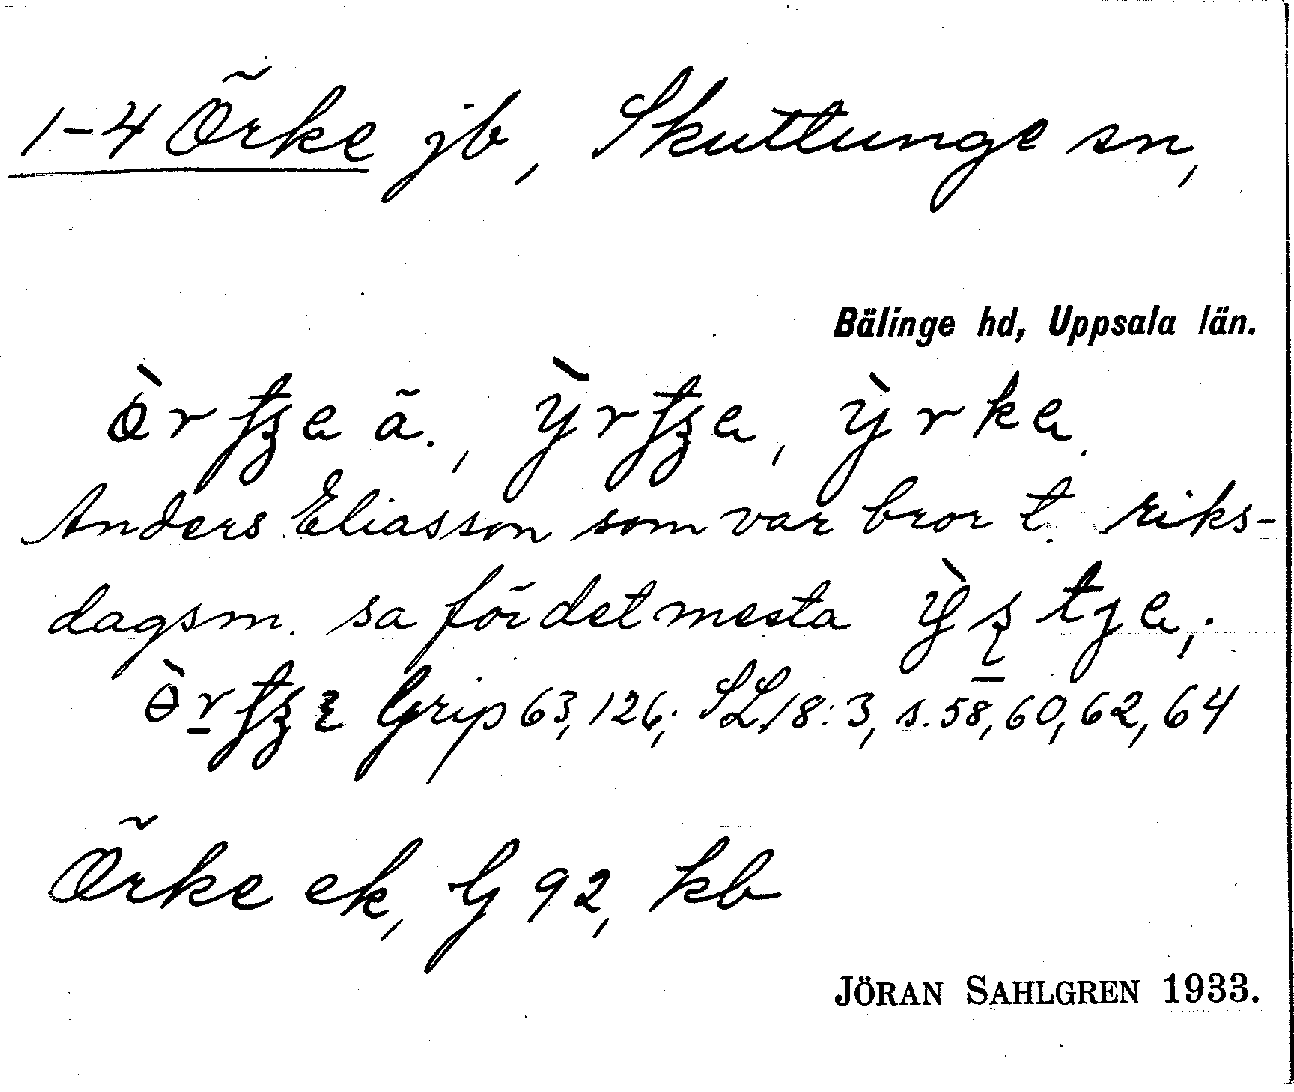 1-4 Örke jb, Skuttunge sn,
Bälinge hd, Uppsala län.
ä., ỳrka
Anders Eliasson som var bror t. riks-
dagsm. sa för det mesta
Grip 63, 126; SL 18:3, s. 58, 60, 62, 64
Örke ek, G 92, kb
JÖRAN SAHLGREN 1933.